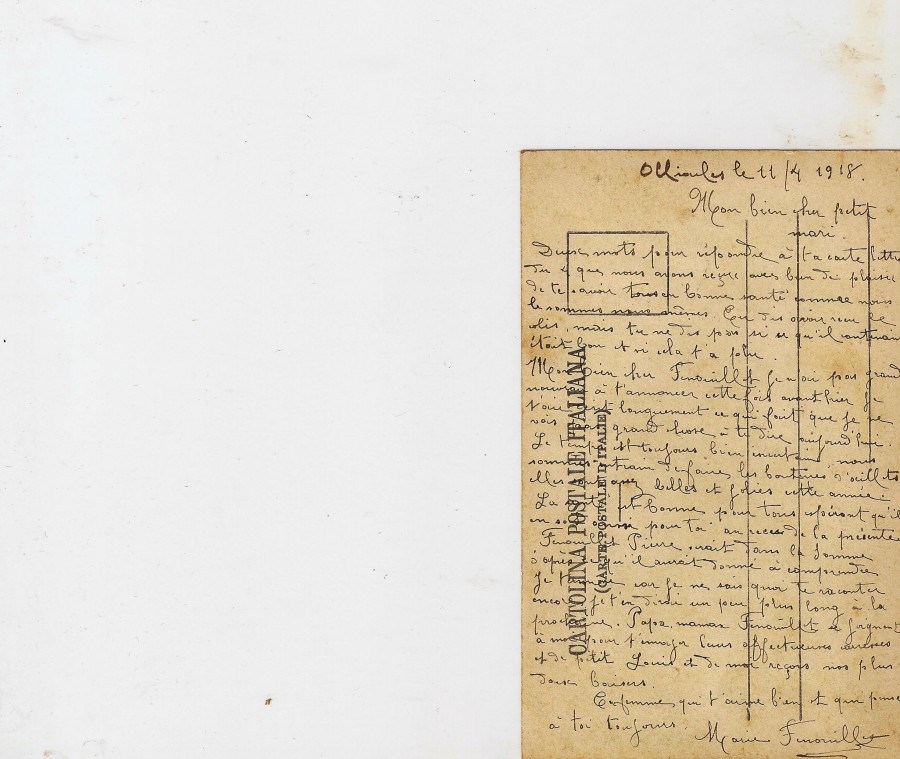 Ollioules le 11/4 1918.
Mon bien cher petit
mari.
Deux mots pour répondre à ta carte lettre
du 2 que nous avons reçue avec bien du plaisir
de te savoir tous en bonne santé comme nous
le sommes nous mêmes. Tu dis avoir reçu le
colis, mais tu ne dis pas si ce qu'il contenait
était bon et si cela t'a plu.
Mon bien cher Finouillet je n'ai pas grand
nouvelle à t'annoncer cette fois avant hier je
t'ai écrit longuement ce qui fait que je ne
vois pas grand chose à te dire aujourd'hui.
Le temps est toujours bien incertain, nous
sommes en train de faire les boutures d'oeillets
elles sont assez belles et jolies cette année.
La santé est bonne pour tous espérant qu'il
en soit ainsi pour toi au reçu de la présente
Finouillet Pierre serait dans la Somme
d'après qu'il aurait donné à comprendre
Je termine car je ne sais quoi te raconter
encore, je t'en dirai un peu plus long à la
prochaine. Papa, maman Finouillet se joignent
à moi pour t'envoyer leurs affectueuses caresses
et de petit Louis et de moi reçois nos plus
doux baisers.
Ta femme qui t'aime bien et qui pense
à toi toujours.
Marie Finouillet
CARTOLINA POSTALE ITALIANA
(CARTE POSTALE D'ITALIE)